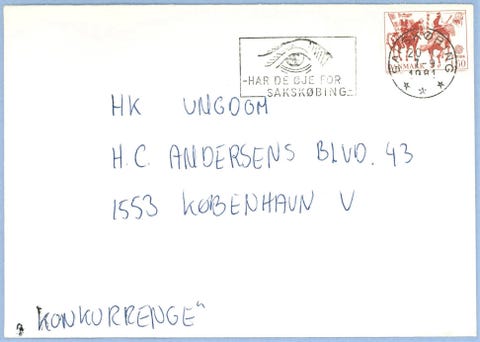 -HAR DE ØJE FOR
SAKSKØBING-
SAKSKØBING
20
9
1981
DANMARK
HK UNGDOM
H.C. ANDERSENS BLVD. 43
1553 KØBENHAVN V
„KONKURRENGE“